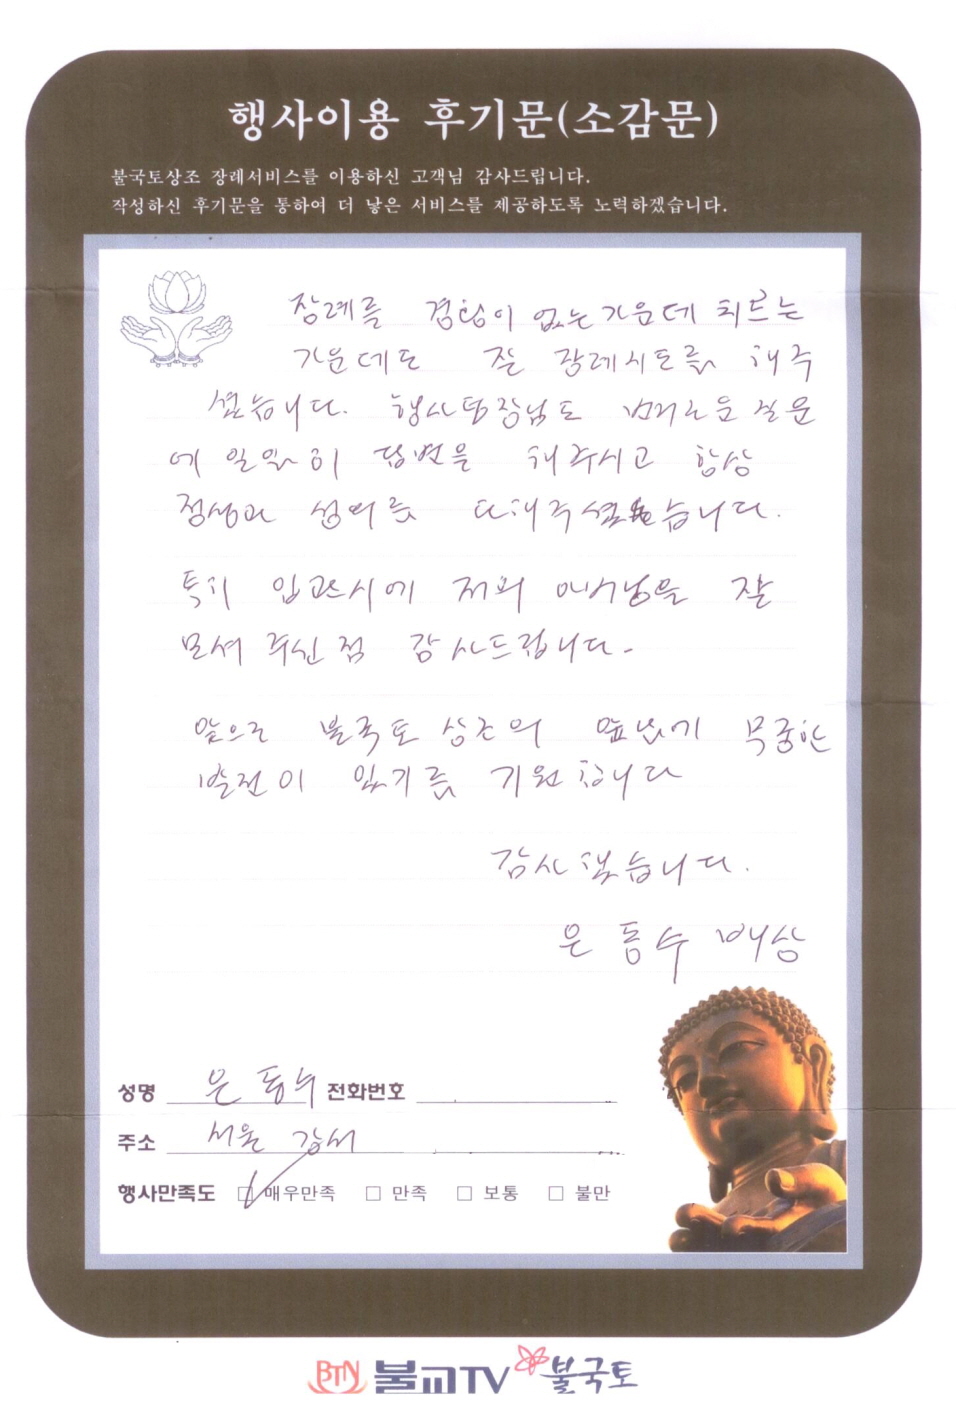 행사이용 후기문(소감문)
불국토상조 장례서비스를 이용하신 고객님 감사드립니다.
작성하신 후기문을 통하여 더 낳은 서비스를 제공하도록 노력하겠습니다.
장례를 경험이 없는 가운데 치르는
가운데도 잘 장례지도를 해주
셨습니다. 행사팀장님도 번거로운 질문
에 일일히 답변을 해주시고 항상
정성과 성의를 다해주셨습니다.
특히 입관시에 저희 어머님을 잘
모셔 주신점 감사드립니다.
앞으로 불국토 상조의 앞날에 무궁한
발전이 있기를 기원합니다
감사했습니다.
은동수 배상
성명 은동수 전화번호
주소 서울 강서
행사만족도 □ 매우만족 □ 만족 □ 보통 □ 불만
BTN 불교TV 불국토